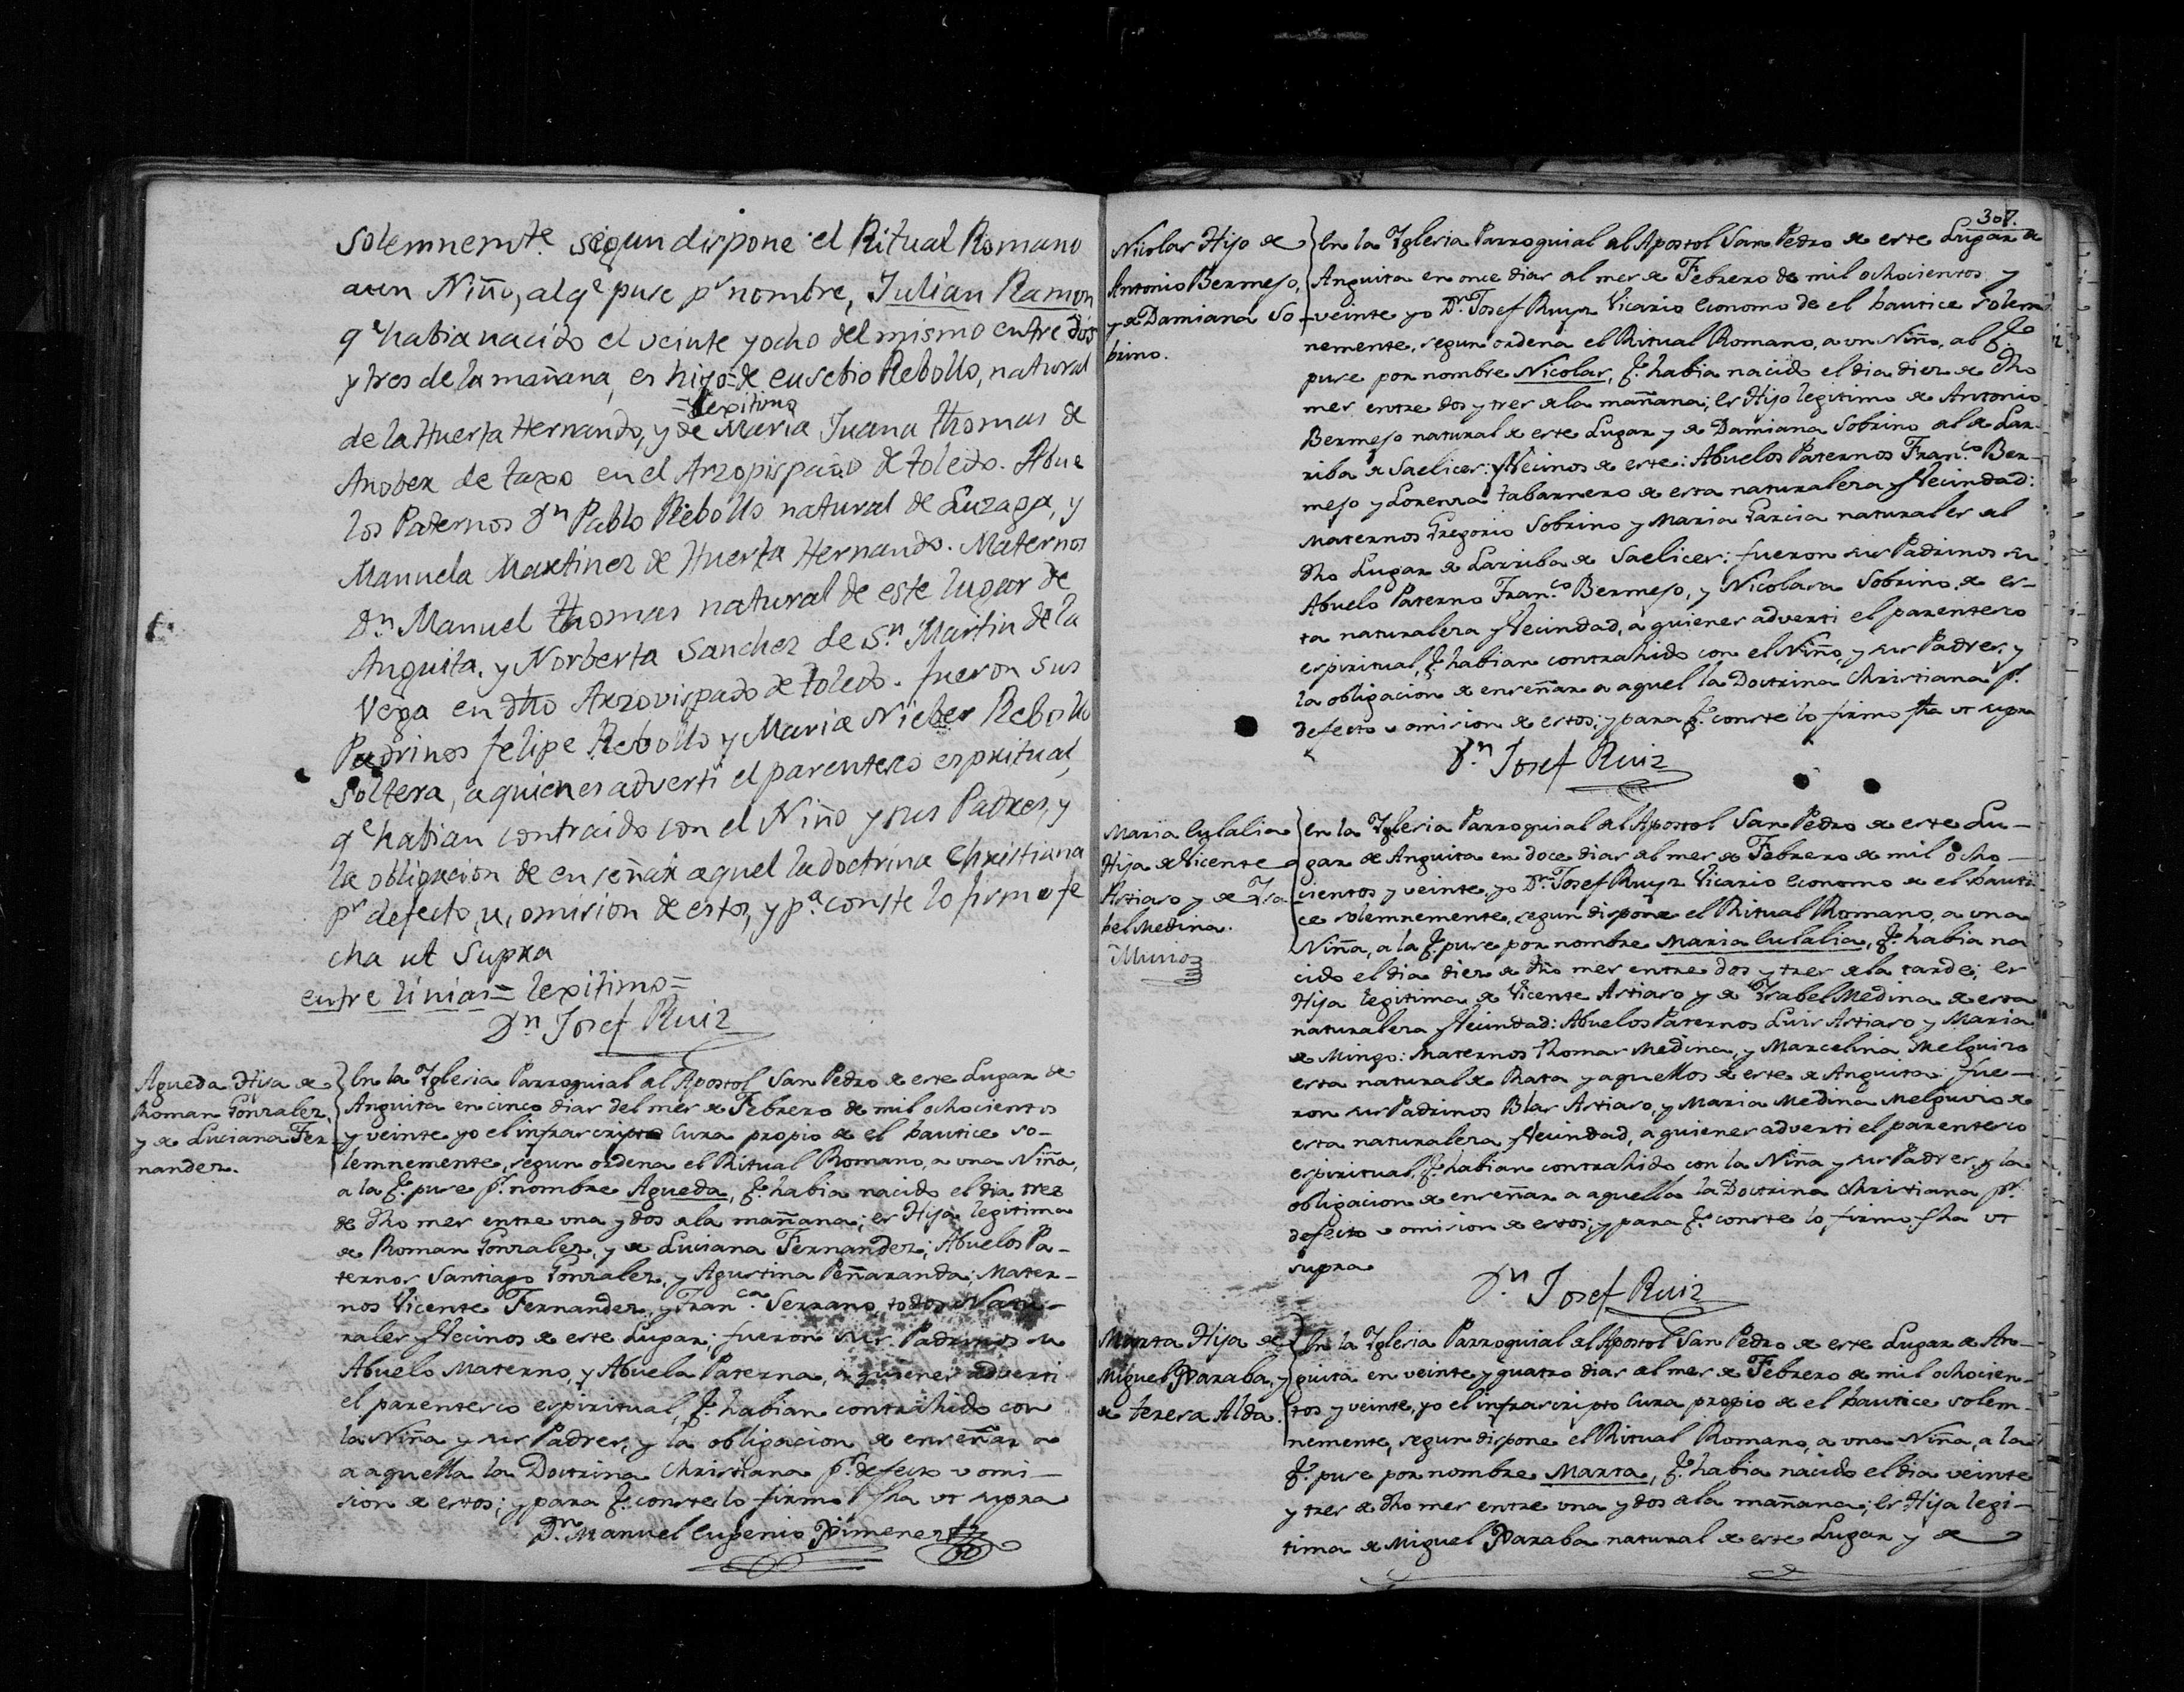 solemnemte. segun dispone el Ritual Romano
aun Niño, al qe puse pr nombre, Julian Ramon
qe habia nacido el veinte yocho del mismo entre dos
y tres de la mañana, es hijo = de eusebio Rebollo, natural
= lexitimo
de la Huerta Hernando, y de Maria Juana thomas de
Anober de taxo en el Arzopispado de toledo. Abue
los Paternos Dn Pablo Rebollo natural de Luzaga, y
Manuela Martinez de Huerta Hernando. Maternos
Dn. Manuel thomas natural de este lugar de
Anguita. y Norberta Sanchez de Sn. Martin de la
Vega en dho Arzovispado de toledo. fueron sus
Padrinos felipe Rebollo y Maria Niebes Rebollo
soltera, a quienes adverti el parentesco espritual,
qe habian contraido con el Niño y sus Padres, y
la obligacion de enseñar aquel la doctrina christiana
pr defecto, u, omision de estos, y pa. conste lo firmo fe
cha ut Supra
entre linias = lexitimo =
Dn Josef Ruiz
Agueda Hija de
Roman Gonzalez,
y de Luciana Fer-
nandez.
En la Yglesia Parroquial del Apostol San Pedro de este Lugar de
Anguita en cinco dias del mes de Febrero de mil ochocientos
y veinte yo el infrascripto Cura propio de el bautice so-
lemnemente, segun ordena el Ritual Romano, a una Niña,
a la q.e puse pr. nombre Agueda, q.e habia nacido el dia tres
de dho mes entre una y dos de la mañana; es Hija legitima
de Roman Gonzalez, y de Luciana Fernandez; Abuelos Pa-
ternos Santiago Gonzalez, y Agustina Peñaranda; Mater-
nos Vicente Fernandez, y Fran.ca Serrano, todos Natu-
rales y Vecinos de este Lugar; fueron sus Padrinos su
Abuelo Materno, y Abuela Paterna, a quienes adverti
el parentesco espiritual, q.e habian contrahido con
la Niña y sus Padres, y la obligacion de enseñar a
a aquella la Doctrina Christiana pr. defecto u omi-
sion de estos; y para q.e conste lo firmo fha ut supra
Dn. Manuel Eugenio Ximenez
307.
Nicolas Hijo de
Antonio Bermejo,
y de Damiana So-
brino.
En la Yglesia Parroquial del Apostol San Pedro de este Lugar de
Anguita en once dias del mes de Febrero de mil ochocientos y
veinte yo Dn. Josef Ruyz Vicario Economo de el bautice solem
nemente, segun ordena el Ritual Romano, a un Niño, al q.e
puse por nombre Nicolas, q.e habia nacido el dia diez de dho
mes entre dos y tres de la mañana; es Hijo legitimo de Antonio
Bermejo natural de este Lugar y de Damiana Sobrino del de Lar-
riba de Saelices: y Vecinos de este: Abuelos Paternos Fran.co Ber-
mejo y Lorenza tabarnero de esta naturaleza y Vecindad:
Maternos Gregorio Sobrino y Maria Garcia naturales del
dho Lugar de Larriba de Saelices: fueron sus Padrinos su
Abuelo Paterno Fran.co Bermejo, y Nicolasa Sobrino de es-
ta naturaleza y Vecindad, a quienes adverti el parentesco
espiritual, q.e habian contrahido con el Niño, y sus Padres, y
la obligacion de enseñar a aquel la Doctrina Christiana pr.
defecto u omision de estos; y para q.e conste lo firmo fha ut supra
Dn. Josef Ruiz
Maria Eulalia
Hija de Vicente
Artiaso y de Ysa-
bel Medina.
Murio
En la Yglesia Parroquial del Apostol San Pedro de este Lu-
gar de Anguita en doce dias del mes de Febrero de mil ocho-
cientos y veinte, yo Dn. Josef Ruyz Vicario Economo de el bauti
ce solemnemente, segun dispone el Ritual Romano, a una
Niña, a la q.e puse por nombre Maria Eulalia, q.e habia na
cido el dia diez de dho mes entre dos y tres de la tarde; es
Hija legitima de Vicente Artiaso y de Ysabel Medina de esta
naturaleza y Vecindad: Abuelos Paternos Luis Artiaso y Maria
de Mingo: Maternos Thomas Medina, y Marcelina Melguizo
esta natural de Rata y aquellos de este de Anguita: fue-
ron sus Padrinos Blas Artiaso, y Maria Medina Melguizo de
esta naturaleza y Vecindad, a quienes adverti el parentesco
espiritual, q.e habian contrahido con la Niña y sus Padres, y la
obligacion de enseñar a aquella la Doctrina Christiana pr.
defecto u omision de estos; y para q.e conste lo firmo fha ut
supra
Dn. Josef Ruiz
Marta Hija de
Miguel Xaraba, y
de teresa Alda.
En la Yglesia Parroquial del Apostol San Pedro de este Lugar de An-
guita en veinte y quatro dias del mes de Febrero de mil ochocien-
tos y veinte, yo el infrascripto Cura propio de el bautice solem-
nemente, segun dispone el Ritual Romano, a una Niña, a la
q.e puse por nombre Marta, q.e habia nacido el dia veinte
y tres de dho mes entre una y dos de la mañana; es Hija legi-
tima de Miguel Xaraba natural de este Lugar y de